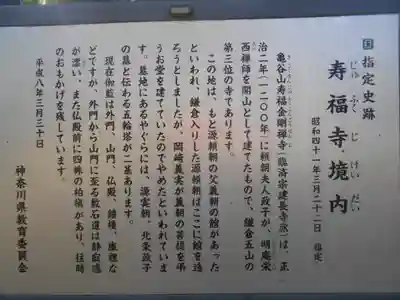 国指定史跡
寿福寺境内
じゅふくじけいだい
昭和四十一年三月二十二日 指定
亀谷山寿福金剛禅寺(臨済宗建長寺派)は、正
治二年(一二〇〇年)に頼朝夫人政子が、明庵栄
西禅師を開山として建てたもので、鎌倉五山の
第三位の寺であります。
この地は、もと源頼朝の父義朝の館があった
といわれ、鎌倉入りした源頼朝はここに館を造
ろうとしましたが、岡崎義実が義朝の菩提を弔
うお堂を建てていたのでやめたといわれていま
す。墓地にあるやぐらには、源実朝、北条政子
の墓と伝わる五輪塔が二基あります。
現在伽藍は外門、山門、仏殿、鐘楼、庫裡な
どですが、外門から山門に至る敷石道は静寂感
が漂い、また仏殿前に四株の柏槙があり、往時
のおもかげを残しています。
平成八年三月三十日
神奈川県教育委員会